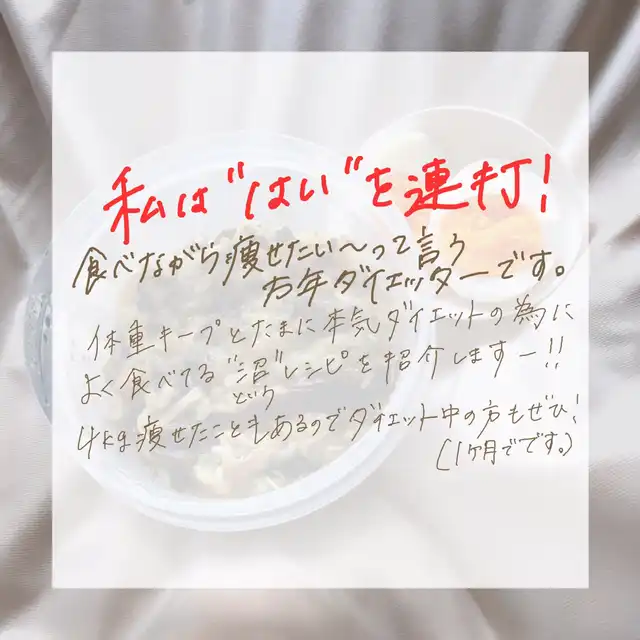 私は"はい"を連打!
食べながら痩せたい〜って言う
万年ダイエッターです。
体重キープとたまに本気ダイエットの為に
よく食べてる"沼"レシピを紹介しますー!!
という
4kg痩せたこともあるのでダイエット中の方もぜひ!
(1ヶ月でです。)